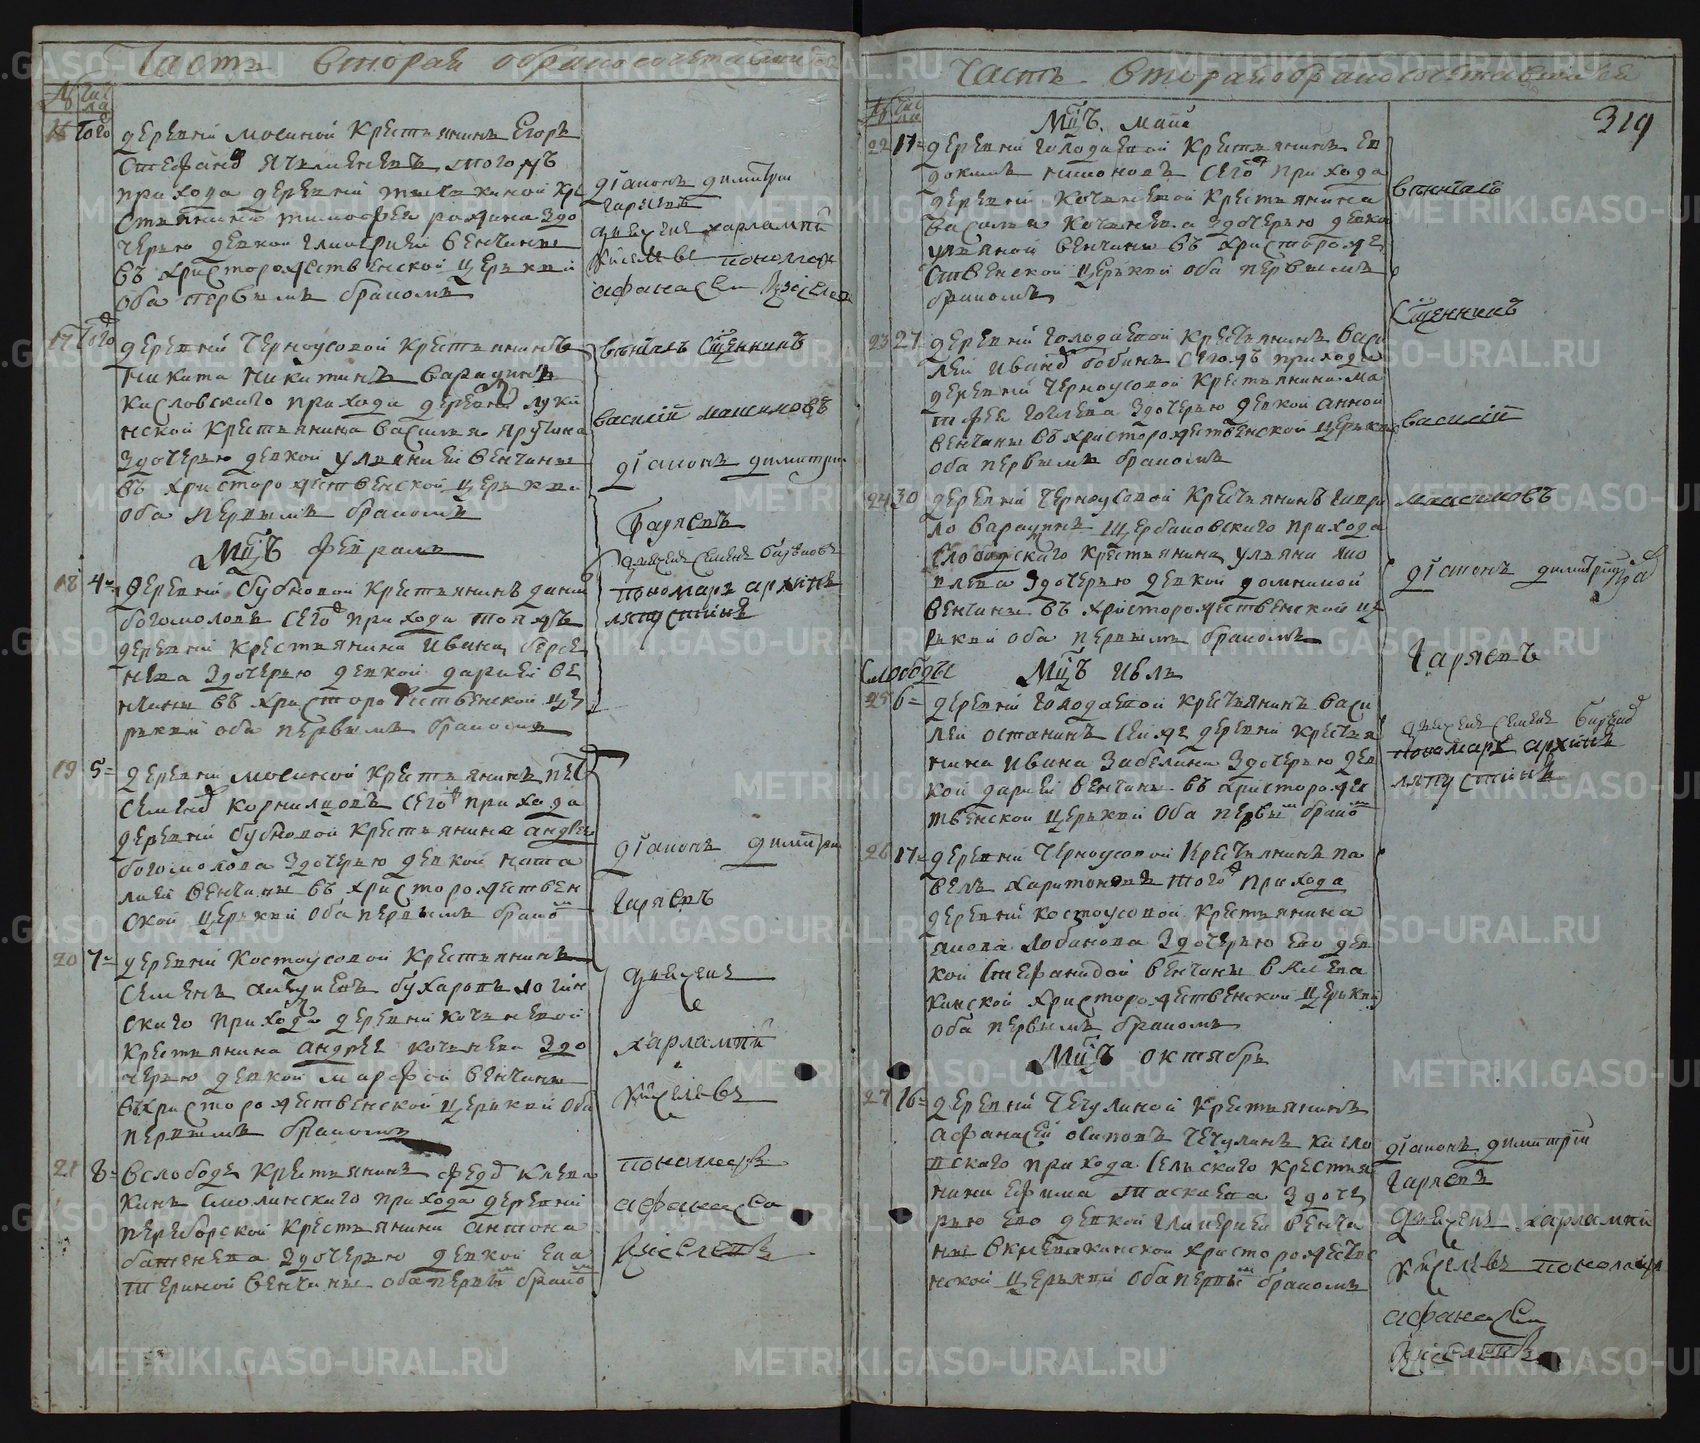 Часть вторая о бракосочетавшихся
№ Числа
16 Того деревни мосиной крестьянинъ Егоръ
Стефанов Ячменевъ тогожъ
прихода деревни
стьянина тимофея здо
черью девкой гликриеи венчаны
въ христорождественской церькви
оба первымъ бракомъ
дiаконъ димитри
Гаряевъ
дьячекъ харлампiй
Киселевъ пономарь
афанасеи Киселевъ
17 Того деревни Черноусовой крестьянинъ
Никита Никитинъ Варакинъ
Кисловскаго прихода деревни луки
нской крестьянина василья Яругина
здочерью девкой ульяниеи венчаны
въ христорождественской церькви
оба первымъ бракомъ
венчалъ Сщенникъ
василiй максимовъ
дiаконъ димитрии
Гаряевъ
дьячекъ семенъ бирюковъ
пономарь архипъ
ляпустинъ
Мцъ февраль
18 4 деревни бубновой крестьянинъ данил
богомоловъ сего прихода тоежъ
деревни крестьянина Ивана берсе
нева здочерью девкой дарьей ве
нчаны въ христорождественской це
ркви оба первымъ бракомъ
19 5 деревни мосиной крестьянинъ петръ
Семенов корниловъ сего прихода
деревни бубновой крестьянина андрея
богомолова здочерью девкой ната
лиеи венчаны въ христорождествен
ской церькви оба первымъ бракомъ
дiаконъ димитри
Гаряевъ
20 7 деревни Костоусовой крестьянинъ
Семенъ бухаровъ логин
скаго прихода деревни коченевой
крестьянина андрея коченева здо
черью девкой марфой венчаны
въ христорождественской церькви оба
первымъ бракомъ
дьячекъ
харлампiй
Киселевъ
21 8 вслободе крестьянинъ федо Клева
кинъ смолинскаго прихода деревни
переборской крестьянина антона
баженева здочерью девкой ека
териной венчаны оба первым брако
пономарь
афанасеи
Киселевъ
Часть вторая о бракосочетавшихся
319
№ Числа
Мцъ. маiя
22 17 деревни Голодаевой крестьянинъ ев
докимъ никоновъ сего прихода
деревни коченевой крестьянина
василья коченева здочерью девкой
ульяной венчаны въ христорожде
ственской церькви оба первымъ
бракомъ
венчалъ
Сщенникъ
23 27 деревни Голодаевой крестьянинъ васи
леи иванов бобинъ сегожъ прихода
деревни черноусовой крестьянина ма
тфея гоглева здочерью девкой анной
венчаны въ христорождественской церькви
оба первымъ бракомъ
василiй
24 30 деревни черноусовой крестьянинъ гаври
ло варакинъ щербаковскаго прихода
Слободскаго крестьянина ульяна
здочерью девкой домникой
венчаны въ христорождественской це
ркви оба первымъ бракомъ
максимовъ
дiаконъ димитрий
Гаряевъ
Слободы Мцъ Июль
25 6 деревни Голодаевой крестьянинъ васи
леи останинъ сеиже деревни крестья
нина ивана забелина здочерью дев
кой дарьей венчаны въ христорождес
твенской церькви оба первым брако
дьячекъ семенъ бирюков
пономарь архипъ
ляпустинъ
26 17 деревни Черноусовой крестьянинъ па
велъ харитоновъ того прихода
деревни костоусовой крестьянина
якова лобанова здочерью ево дев
кой стефанидой венчаны в клева
кинской христорождественской церькви
оба первымъ бракомъ
Мцъ октябрь
27 16 деревни Чечулиной крестьянинъ
афанасеи осиповъ чечулинъ кисло
вскаго прихода сельскаго крестья
нина ефима таскаева здоче
рью ево девкой гликериеи венча
ны вклевакинской христорождестве
нской церькви оба первы бракомъ
дiаконъ димитрiи
Гаряевъ
дьячекъ харлампи
Киселевъ пономарь
афанасеи
Киселевъ